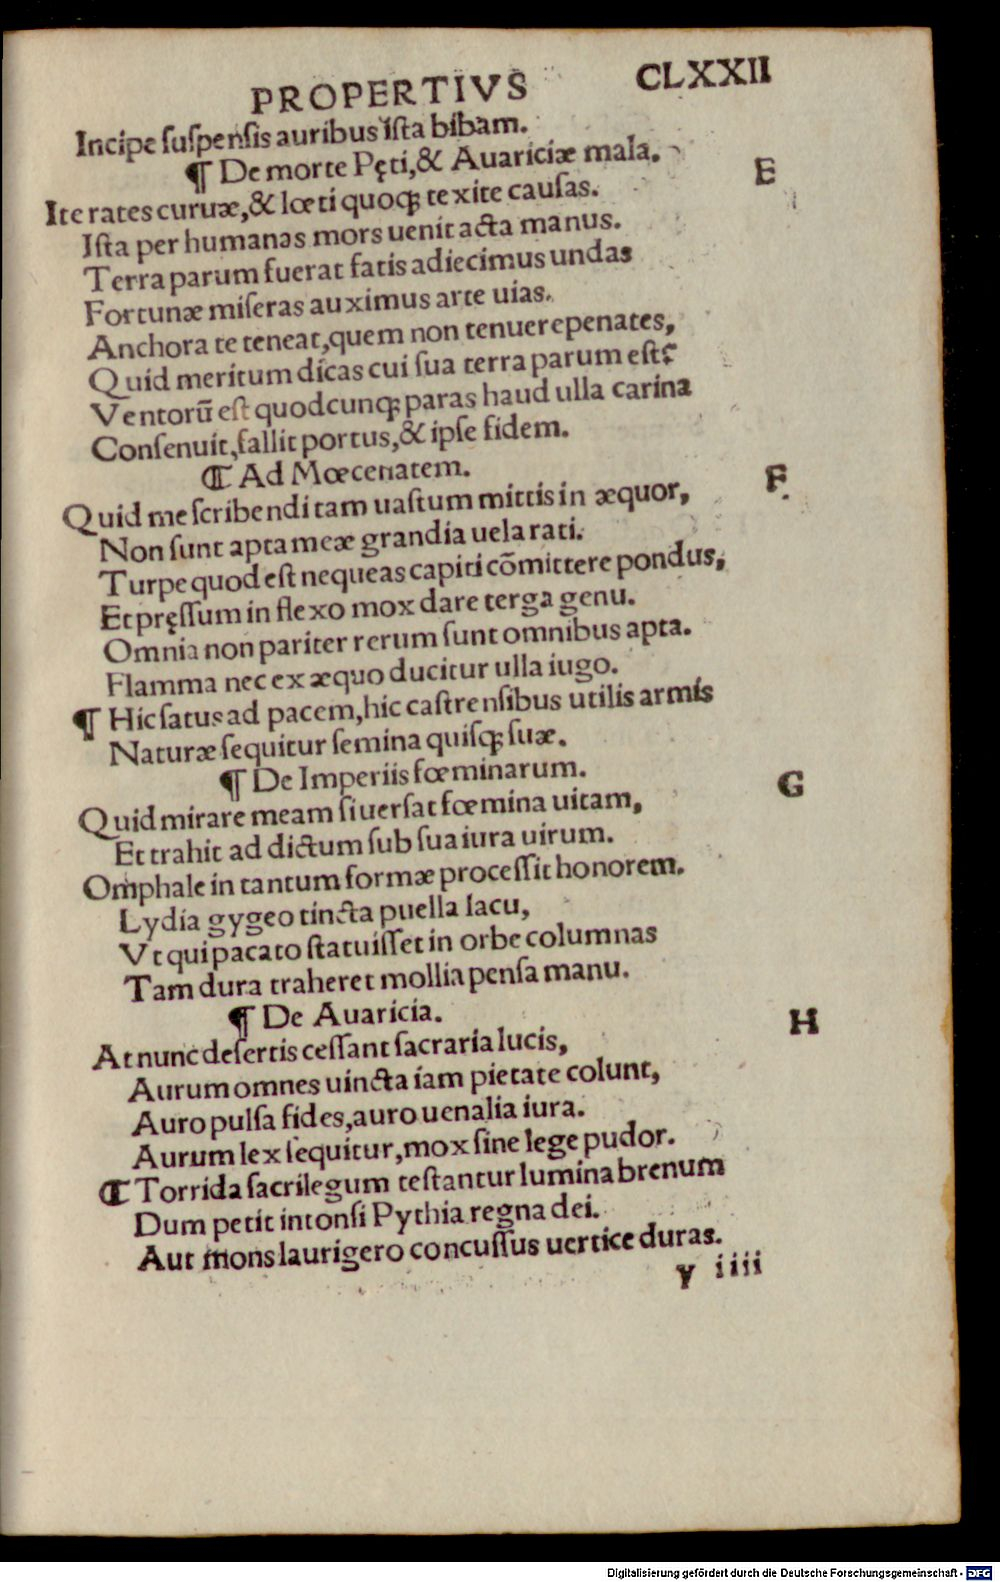 PROPERTIVS CLXXII
Incipe ſuſpenſis auribus iſta bibam.
¶ De morte Pęti,& Auariciæ mala. E
Ite rates curuæ,& lœti quoqꝫ texite cauſas.
Iſta per humanas mors uenit acta manus.
Terra parum fuerat fatis adiecimus undas
Fortunæ miſeras auximus arte uias.
Anchora te teneat,quem non tenuere penates,
Quid meritum dicas cui ſua terra parum eſt?
Ventorū eſt quodcunqꝫ paras haud ulla carina
Conſenuit,fallit portus,& ipſe fidem.
¶ Ad Mœcenatem. F
Quid me ſcribendi tam uaſtum mittis in æquor,
Non ſunt apta meæ grandia uela rati.
Turpe quod eſt nequeas capiti cōmittere pondus,
Et pręſſum in flexo mox dare terga genu.
Omnia non pariter rerum ſunt omnibus apta.
Flamma nec ex æquo ducitur ulla iugo.
¶ Hic ſatus ad pacem,hic caſtrenſibus utilis armis
Naturæ ſequitur ſemina quiſqꝫ ſuæ.
¶ De Imperiis fœminarum. G
Quid mirare meam ſi uerſat fœmina uitam,
Et trahit ad dictum ſub ſua iura uirum.
Omphale in tantum formæ proceſſit honorem.
Lydia gygeo tincta puella lacu,
Vt qui pacato ſtatuiſſet in orbe columnas
Tam dura traheret mollia penſa manu.
¶ De Auaricia. H
At nunc deſertis ceſſant ſacraria lucis,
Aurum omnes uincta iam pietate colunt,
Auro pulſa fides,auro uenalia iura.
Aurum lex ſequitur,mox ſine lege pudor.
¶ Torrida ſacrilegum teſtantur lumina brenum
Dum petit intonſi Pythia regna dei.
Aut mons laurigero concuſſus uertice duras.
y iiii
Digitalisierung gefördert durch die Deutsche Forschungsgemeinschaft - DFG